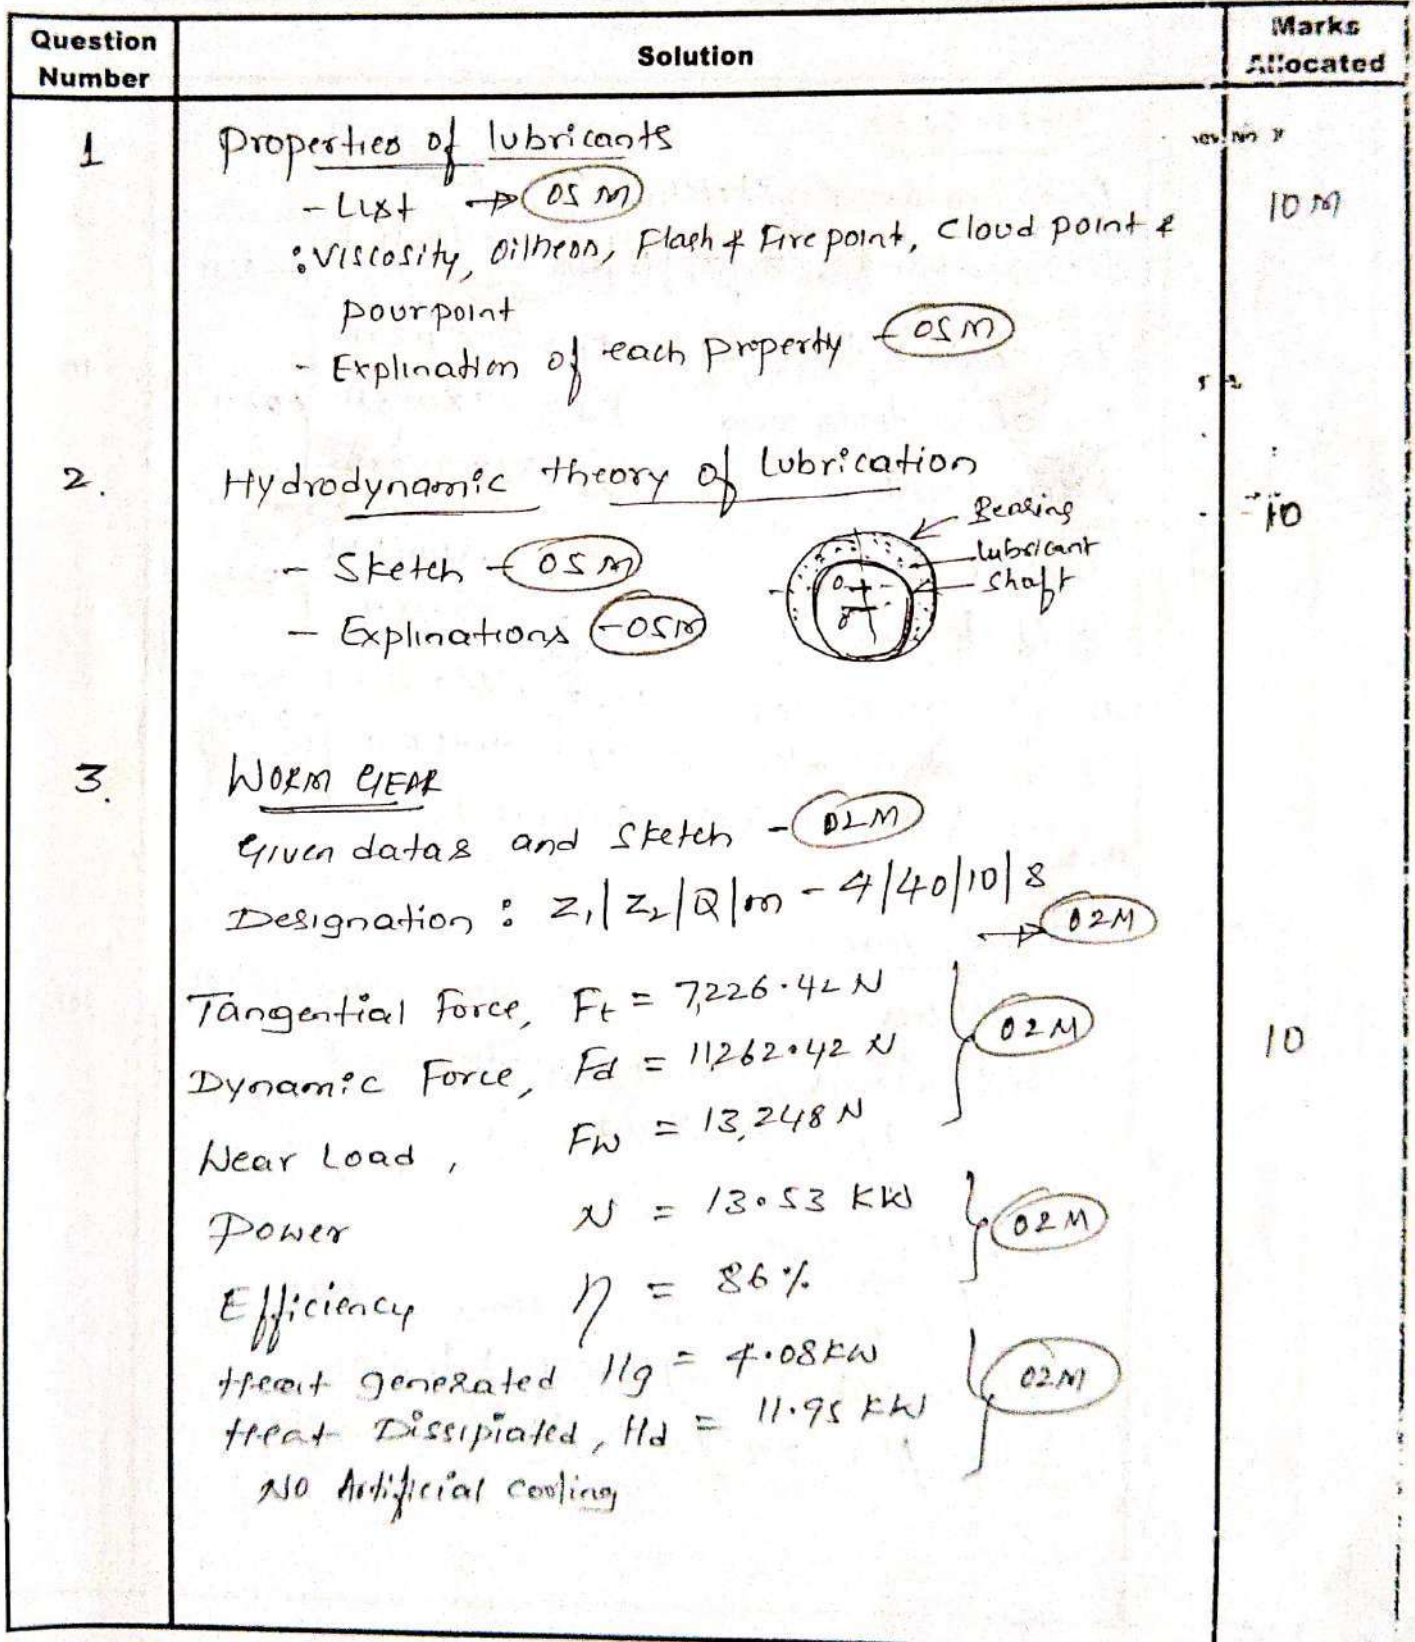 Question Number
Solution
Marks Allocated
1
Properties of lubricants
- List → 05 M
10 M
: Viscosity, Oilness, Flash & Fire point, Cloud point &
pour point
- Explination of each property - 05 M
2.
Hydrodynamic theory of Lubrication
10
Bearing
lubricant
shaft
- Sketch - 05 M
- Explinations - 05 M
3.
WORM GEAR
Given datas and Sketch - 02 M
Designation : Z₁|Z₂|Q|m - 4/40/10/8
→ 02 M
Tangential force, Ft = 7,226.42 N
02 M
10
Dynamic Force, Fd = 11262.42 N
Wear Load, Fw = 13,248 N
Power N = 13.53 KW
02 M
Efficiency η = 86 %
Heat generated Hg = 4.08 KW
02 M
Heat Dissipiated, Hd = 11.95 KW
No Artificial Cooling